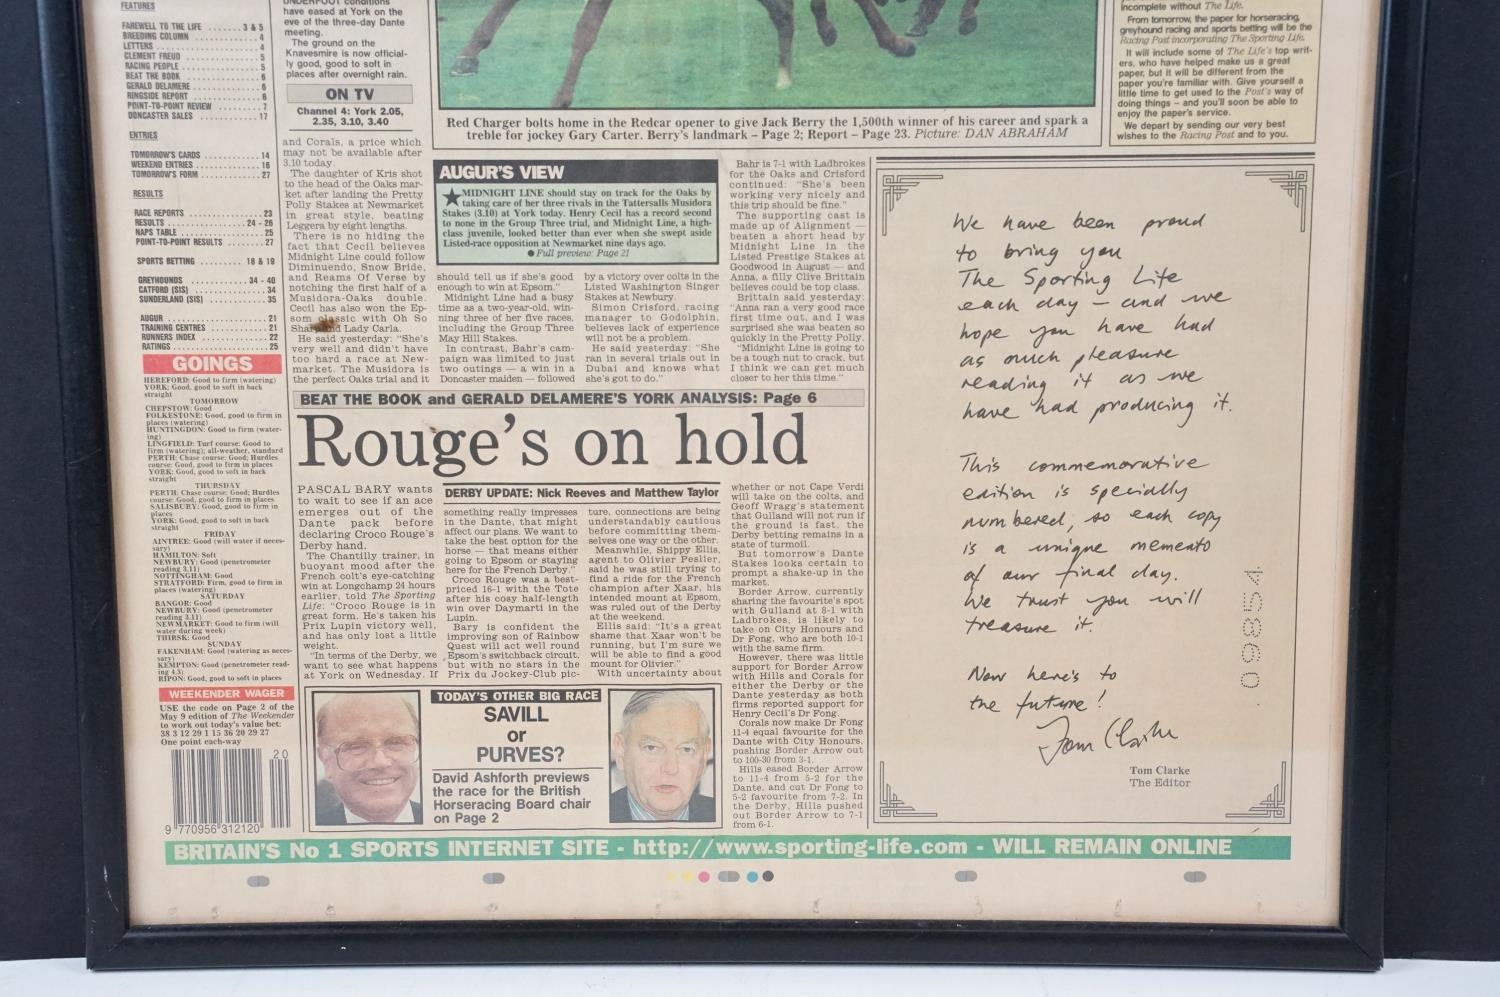 FEATURES
FAREWELL TO THE LIFE ....... 3 & 5
BREEDING COLUMN ....... 4
LETTERS ....... 4
CLEMENT FREUD ....... 5
RACING PEOPLE ....... 5
BEAT THE BOOK ....... 6
GERALD DELAMERE ....... 6
RINGSIDE REPORT ....... 6
POINT-TO-POINT REVIEW ....... 7
DONCASTER SALES ....... 17
ENTRIES
TOMORROW'S CARDS ....... 14
WEEKEND ENTRIES ....... 16
TOMORROW'S FORM ....... 27
RESULTS
RACE REPORTS ....... 23
RESULTS ....... 24 - 26
NAPS TABLE ....... 25
POINT-TO-POINT RESULTS ....... 27
SPORTS BETTING ....... 18 & 19
GREYHOUNDS ....... 34 - 40
CATFORD (SIS) ....... 34
SUNDERLAND (SIS) ....... 35
AUGUR ....... 21
TRAINING CENTRES ....... 21
RUNNERS INDEX ....... 22
RATINGS ....... 25
GOINGS
HEREFORD: Good to firm (watering)
YORK: Good, good to soft in back
straight
TOMORROW
CHEPSTOW: Good
FOLKESTONE: Good, good to firm in
places (watering)
HUNTINGDON: Good to firm (water-
ing)
LINGFIELD: Turf course: Good to
firm (watering); all-weather, standard
PERTH: Chase course: Good; Hurdles
course: Good, good to firm in places
YORK: Good, good to soft in back
straight
THURSDAY
PERTH: Chase course: Good; Hurdles
course: Good, good to firm in places
SALISBURY: Good, good to firm in
places
YORK: Good, good to soft in back
straight
FRIDAY
AINTREE: Good (will water if neces-
sary)
HAMILTON: Soft
NEWBURY: Good (penetrometer
reading 3.11)
NOTTINGHAM: Good
STRATFORD: Firm, good to firm in
places (watering)
SATURDAY
BANGOR: Good
NEWBURY: Good (penetrometer
reading 3.11)
NEWMARKET: Good to firm (will
water during week)
THIRSK: Good
SUNDAY
FAKENHAM: Good (watering as neces-
sary)
KEMPTON: Good (penetrometer read-
ing 4.3)
RIPON: Good, good to soft in places
WEEKENDER WAGER
USE the code on Page 2 of the
May 9 edition of The Weekender
to work out today's value bet:
38 3 12 29 1 15 36 20 29 27
One point each-way
20
9 770956 312120
UNDERFOOT conditions
have eased at York on the
eve of the three-day Dante
meeting.
The ground on the
Knavesmire is now official-
ly good, good to soft in
places after overnight rain.
ON TV
Channel 4: York 2.05,
2.35, 3.10, 3.40
and Corals, a price which
may not be available after
3.10 today.
The daughter of Kris shot
to the head of the Oaks mar-
ket after landing the Pretty
Polly Stakes at Newmarket
in great style, beating
Leggera by eight lengths.
There is no hiding the
fact that Cecil believes
Midnight Line could follow
Diminuendo, Snow Bride,
and Reams Of Verse by
notching the first half of a
Musidora-Oaks double.
Cecil has also won the Ep-
som classic with Oh So
Sharp and Lady Carla.
He said yesterday: "She's
very well and didn't have
too hard a race at New-
market. The Musidora is
the perfect Oaks trial and it
Red Charger bolts home in the Redcar opener to give Jack Berry the 1,500th winner of his career and spark a
treble for jockey Gary Carter. Berry's landmark – Page 2; Report – Page 23. Picture: DAN ABRAHAM
AUGUR'S VIEW
MIDNIGHT LINE should stay on track for the Oaks by
taking care of her three rivals in the Tattersalls Musidora
Stakes (3.10) at York today. Henry Cecil has a record second
to none in the Group Three trial, and Midnight Line, a high-
class juvenile, looked better than ever when she swept aside
Listed-race opposition at Newmarket nine days ago.
● Full preview: Page 21
should tell us if she's good
enough to win at Epsom."
Midnight Line had a busy
time as a two-year-old, win-
ning three of her five races,
including the Group Three
May Hill Stakes.
In contrast, Bahr's cam-
paign was limited to just
two outings — a win in a
Doncaster maiden — followed
by a victory over colts in the
Listed Washington Singer
Stakes at Newbury.
Simon Crisford, racing
manager to Godolphin,
believes lack of experience
will not be a problem.
He said yesterday: "She
ran in several trials out in
Dubai and knows what
she's got to do."
Bahr is 7-1 with Ladbrokes
for the Oaks and Crisford
continued: "She's been
working very nicely and
this trip should be fine."
The supporting cast is
made up of Alignment —
beaten a short head by
Midnight Line in the
Listed Prestige Stakes at
Goodwood in August — and
Anna, a filly Clive Brittain
believes could be top class.
Brittain said yesterday:
"Anna ran a very good race
first time out, and I was
surprised she was beaten so
quickly in the Pretty Polly.
"Midnight Line is going to
be a tough nut to crack, but
I think we can get much
closer to her this time."
BEAT THE BOOK and GERALD DELAMERE'S YORK ANALYSIS: Page 6
Rouge's on hold
PASCAL BARY wants
to wait to see if an ace
emerges out of the
Dante pack before
declaring Croco Rouge's
Derby hand.
The Chantilly trainer, in
buoyant mood after the
French colt's eye-catching
win at Longchamp 24 hours
earlier, told The Sporting
Life: "Croco Rouge is in
great form. He's taken his
Prix Lupin victory well,
and has only lost a little
weight.
"In terms of the Derby, we
want to see what happens
at York on Wednesday. If
DERBY UPDATE: Nick Reeves and Matthew Taylor
something really impresses
in the Dante, that might
affect our plans. We want to
take the best option for the
horse — that means either
going to Epsom or staying
here for the French Derby."
Croco Rouge was a best-
priced 16-1 with the Tote
after his cosy half-length
win over Daymarti in the
Lupin.
Bary is confident the
improving son of Rainbow
Quest will act well round
Epsom's switchback circuit,
but with no stars in the
Prix du Jockey-Club pic-
ture, connections are being
understandably cautious
before committing them-
selves one way or the other.
Meanwhile, Shippy Ellis,
agent to Olivier Peslier,
said he was still trying to
find a ride for the French
champion after Xaar, his
intended mount at Epsom,
was ruled out of the Derby
at the weekend.
Ellis said: "It's a great
shame that Xaar won't be
running, but I'm sure we
will be able to find a good
mount for Olivier."
With uncertainty about
whether or not Cape Verdi
will take on the colts, and
Geoff Wragg's statement
that Gulland will not run if
the ground is fast, the
Derby betting remains in a
state of turmoil.
But tomorrow's Dante
Stakes looks certain to
prompt a shake-up in the
market.
Border Arrow, currently
sharing the favourite's spot
with Gulland at 8-1 with
Ladbrokes, is likely to
take on City Honours and
Dr Fong, who are both 10-1
with the same firm.
However, there was little
support for Border Arrow
with Hills and Corals for
either the Derby or the
Dante yesterday as both
firms reported support for
Henry Cecil's Dr Fong.
Corals now make Dr Fong
11-4 equal favourite for the
Dante with City Honours,
pushing Border Arrow out
to 100-30 from 3-1.
Hills eased Border Arrow
to 11-4 from 5-2 for the
Dante, and cut Dr Fong to
5-2 favourite from 7-2. In
the Derby, Hills pushed
out Border Arrow to 7-1
from 6-1.
TODAY'S OTHER BIG RACE
SAVILL
or
PURVES?
David Ashforth previews
the race for the British
Horseracing Board chair
on Page 2
incomplete without The Life.
From tomorrow, the paper for horseracing,
greyhound racing and sports betting will be the
Racing Post incorporating The Sporting Life.
It will include some of The Life's top writ-
ers, who have helped make us a great
paper, but it will be different from the
paper you're familiar with. Give yourself a
little time to get used to the Post's way of
doing things – and you'll soon be able to
enjoy the paper's service.
We depart by sending our very best
wishes to the Racing Post and to you.
We have been proud
to bring you
The Sporting Life
each day – and we
hope you have had
as much pleasure
reading it as we
have had producing it.
This commemorative
edition is specially
numbered, so each copy
is a unique memento
of our final day.
We trust you will
treasure it.
Now here's to
the future!
Tom Clarke
Tom Clarke
The Editor
09854
BRITAIN'S No 1 SPORTS INTERNET SITE - http://www.sporting-life.com - WILL REMAIN ONLINE